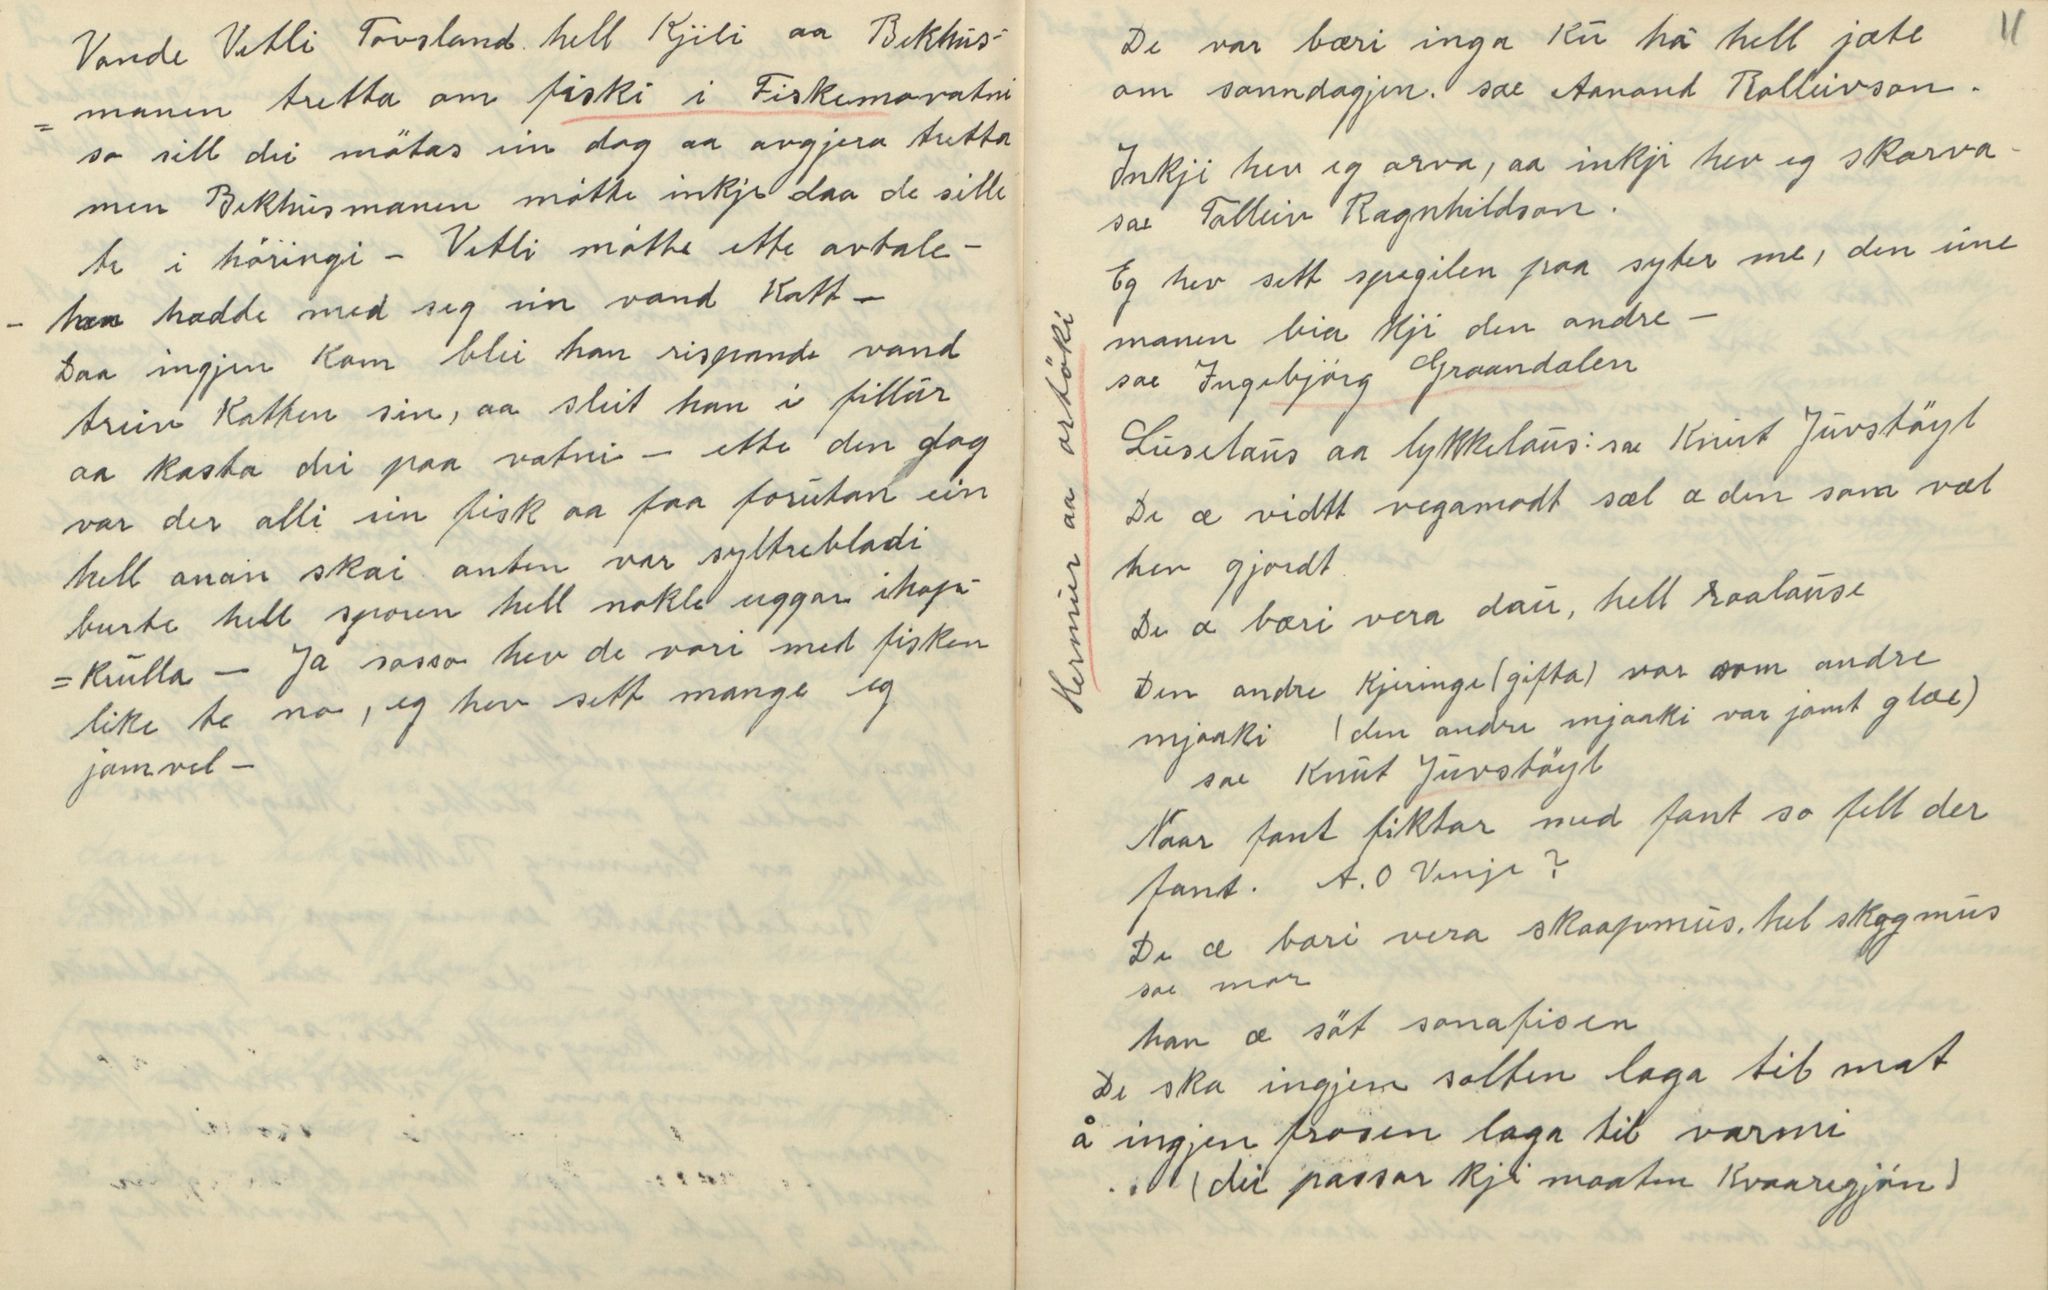 Vonde Vetli Tovsland hell Kjili aa Bekhus-
= manen tretta om fiski i Fiskemovatni
so sill dei mötas ein dag aa avgjera tretta
men Bekhusmanen mötte inkje daa de sille
te i höringi - Vetli mötte ette avtale -
- han hadde med seg ein vand Katt -
Daa ingjen Kom blei han rispande vand
treiv Katten sin, aa sleit han i fillur
aa kasta dei paa vatni - ette den dag
var der alli ein fisk aa faa forutan ein
hell anan skai anten var syltrebladi
burte hell sporen hell nokle uggar ihop-
= krulla - Ja sosso hev de vori med fisken
like te no, eg hev sett mange eg
jamvel -
11
De var bæri inga Ku há hell jæte
om sonndagjen. sae Aanond Rolleivson.
Inkji hev eg arva, aa inkji hev eg skarva -
sae Tolleiv Ragnhildson.
Eg hev sett spegilen paa syter me, den eine
manen bia kji den andre -
sae Ingebjörg Graandalen
Luselaus aa lykkelaus: sae Knut Juvstöyl
De æ vidtt vegamodt sæl æ den som væl
hev gjordt
De æ bæri vera dau, hell raalause
Den andre Kjeringe (gifta) var som andre
mjaaki (den andre mjaaki var jamt glæe)
sae Knut Juvstöyl
Naar fant fiktar med fant so fell der
fant. A.O Venje?
De æ bæri vera skaapmus, hel skogmus
sae mor
han æ söt sonafisen
De ska ingjen solten laga til mat
å ingjen frosen laga til varmi
(dei passar kji maaten Kvaaregjön)
Hermur aa ortöki